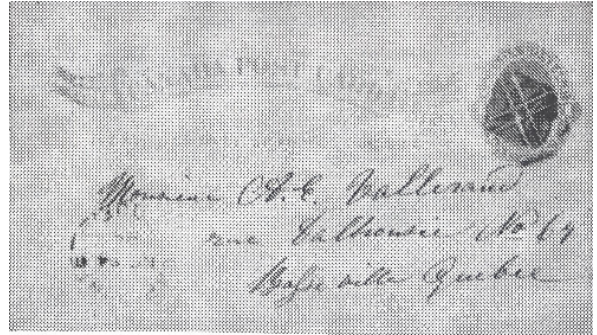 CANADA POST CARD
Monsieur A. E. Vallerand
rue Dalhousie No 64
Basse ville Quebec